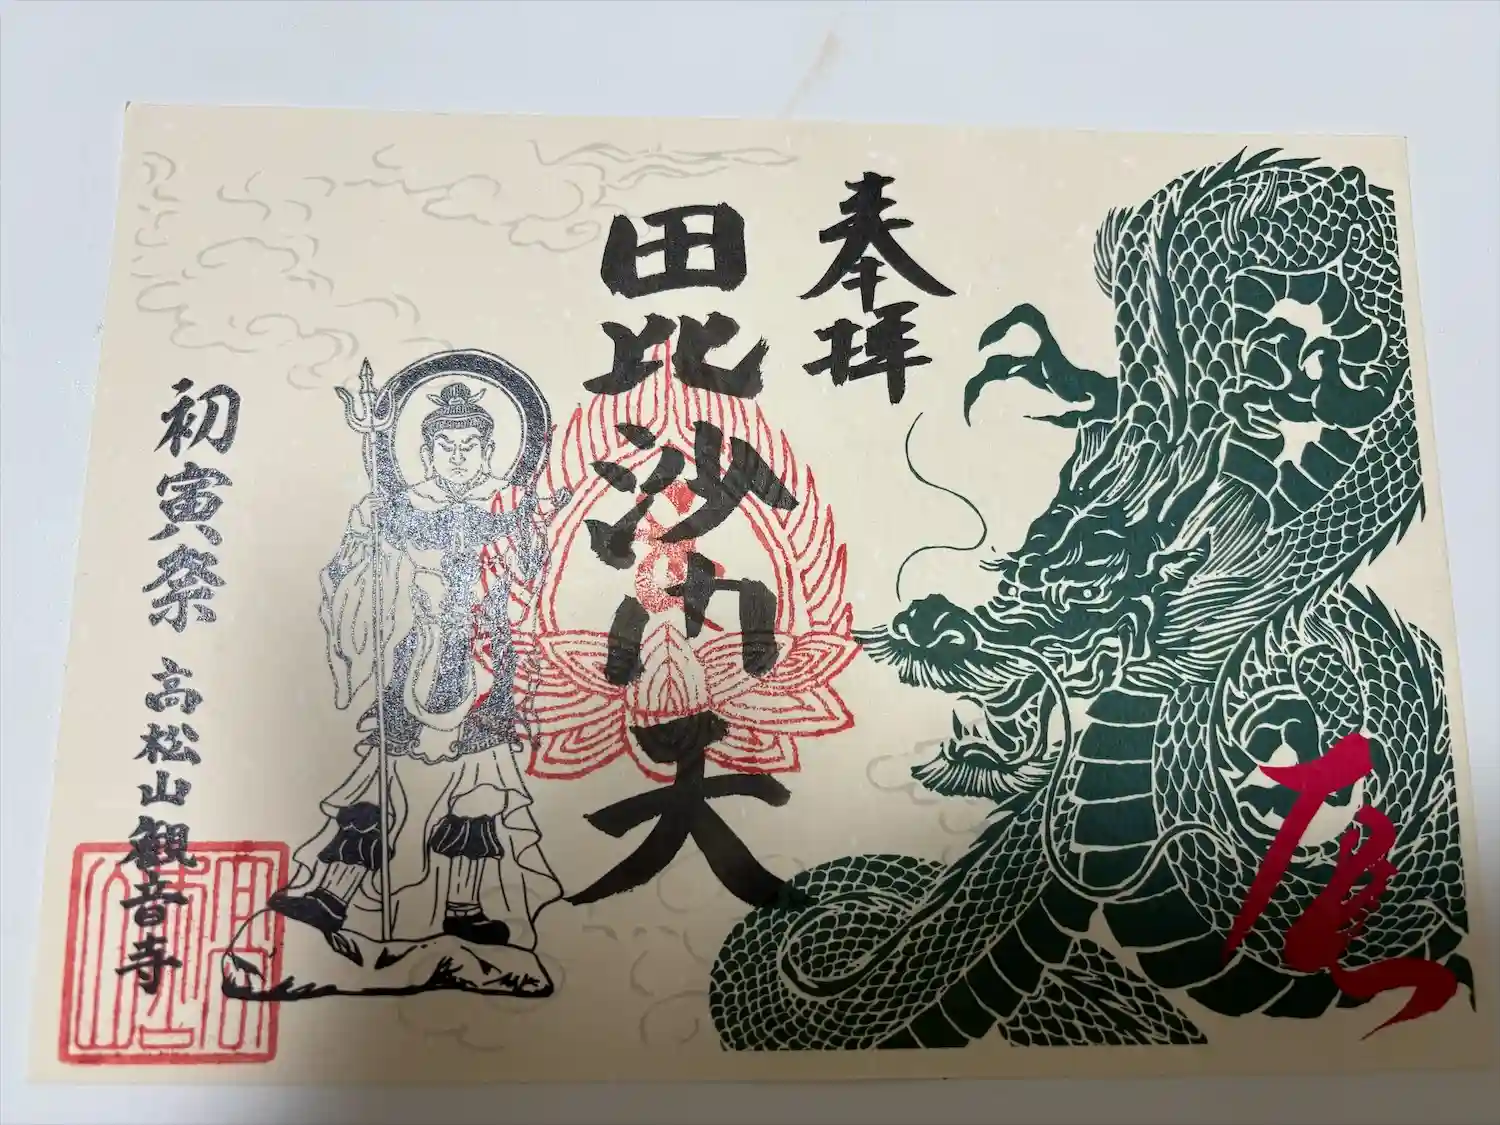 奉拝
田比沙門天
初寅祭 高松山観音寺